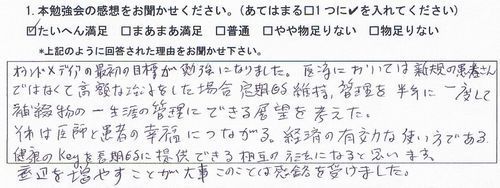 1. 本勉強会の感想をお聞かせください。(あてはまる□1つに✓を入れてください)
☑たいへん満足 □まあまあ満足 □普通 □やや物足りない □物足りない
*上記のように回答された理由をお聞かせ下さい。
オウンドメディアの最初の目標が勉強になりました。医院においては新規の患者さん
ではなくて高額な治療をした場合定期GS維持、管理を半年に一度して
補綴物の一生涯の管理にできる展望を考えた。
それは医師と患者の幸福につながる。経済の有効な使い方である
健康のKeyを長期GSに提供できる相互の方法になると思います。
周辺を増やすことが大事このことは感銘を受けました。